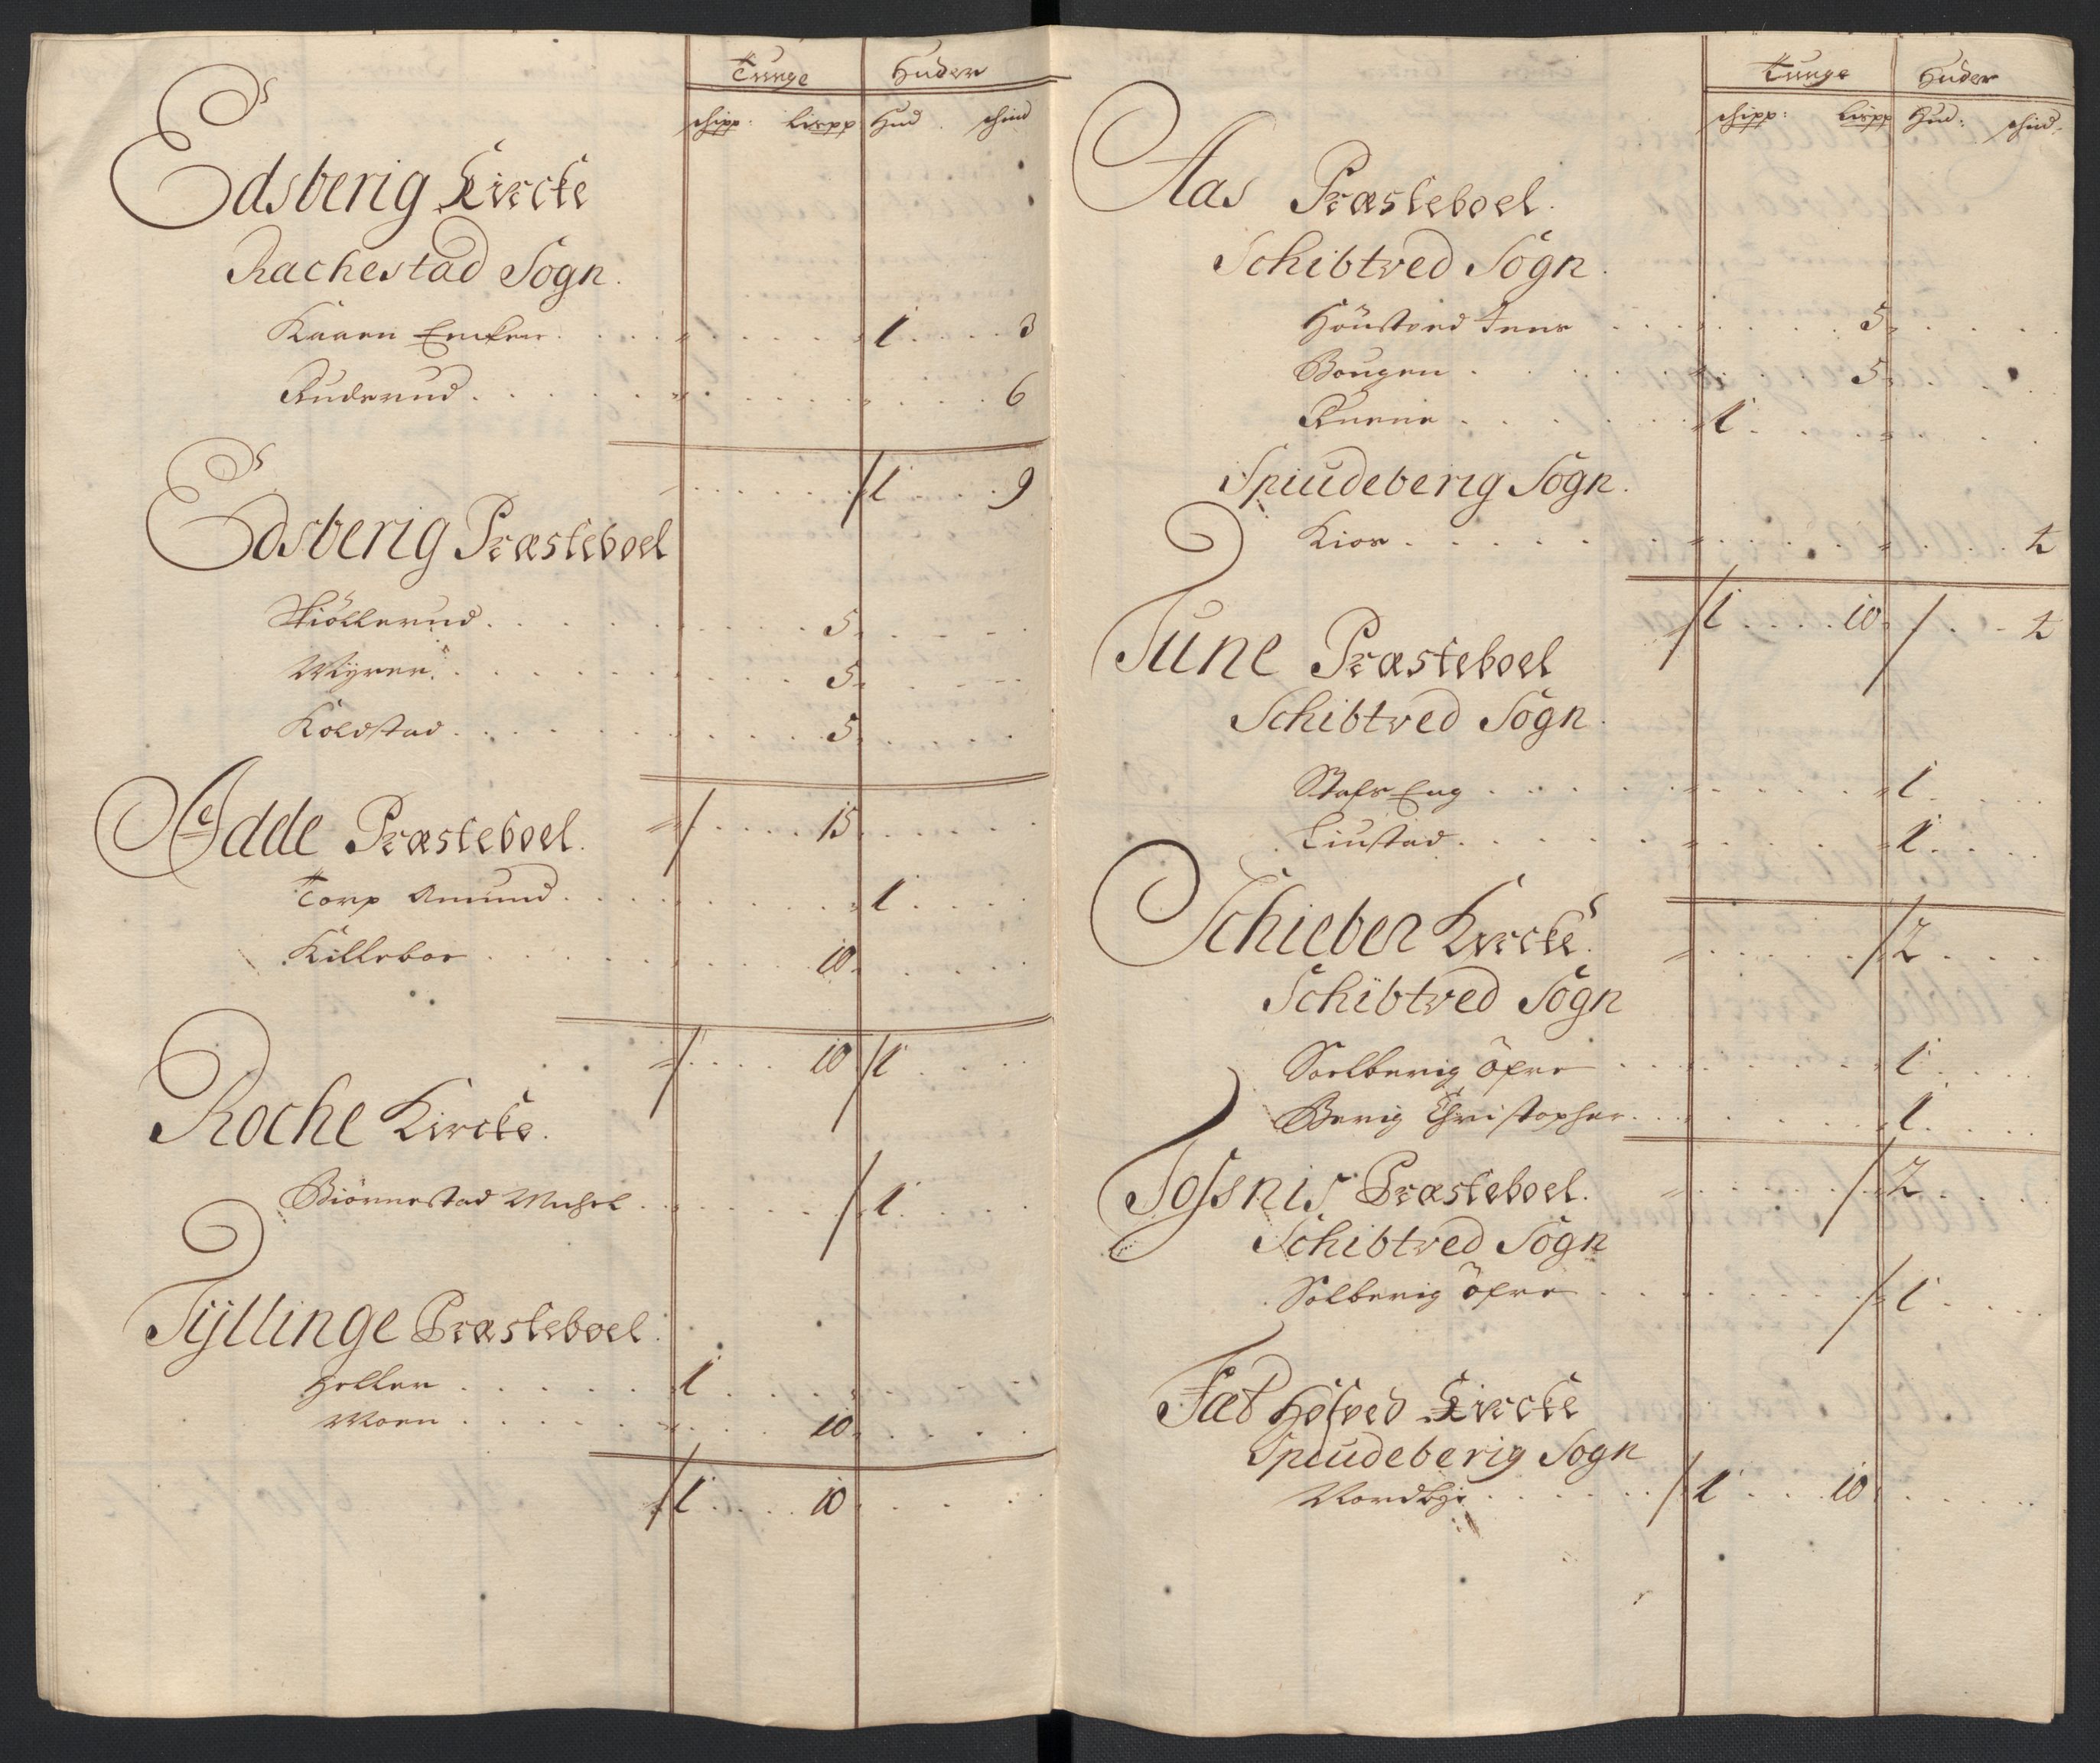 Tunge Huder
schipp: Lispp Hud. schind
Edsberig Kircke
Rachestad Sogn.
Kaaen 1 3
Ruderud 6
1 9
Edsberig Præsteboel
Miöllerud 5
Wijren 5
Koldstad 5
Idde Præsteboel. 15
Torp Amund 1
Killeboe 10
10 1
Roche Kircke.
Biörnestad Michel 1
Tyllinge Præsteboel.
Heller 1
Moen 10
1 10
Tunge Huder
schipp: Lispp Hud: schind.
Aas Præsteboel.
Schibtved Sogn.
Hönstved Jens 5
Bougen 5
Ruene 1
Spiudeberig Sogn.
Kios 2
1 10 2
Tune Præsteboel
Schibtved Sogn.
Stafs Eng 1
Liustad 1
Schieber Kircke. 2
Schibtved Sogn
Soelberig öfre 1
Berig Christopher 1
Fossnis Præsteboel. 2
Schibtved Sogn
Solberig öfre 1
Fæt Hofved Kircke
Spiudeberig Sogn
Nordbye 1 10